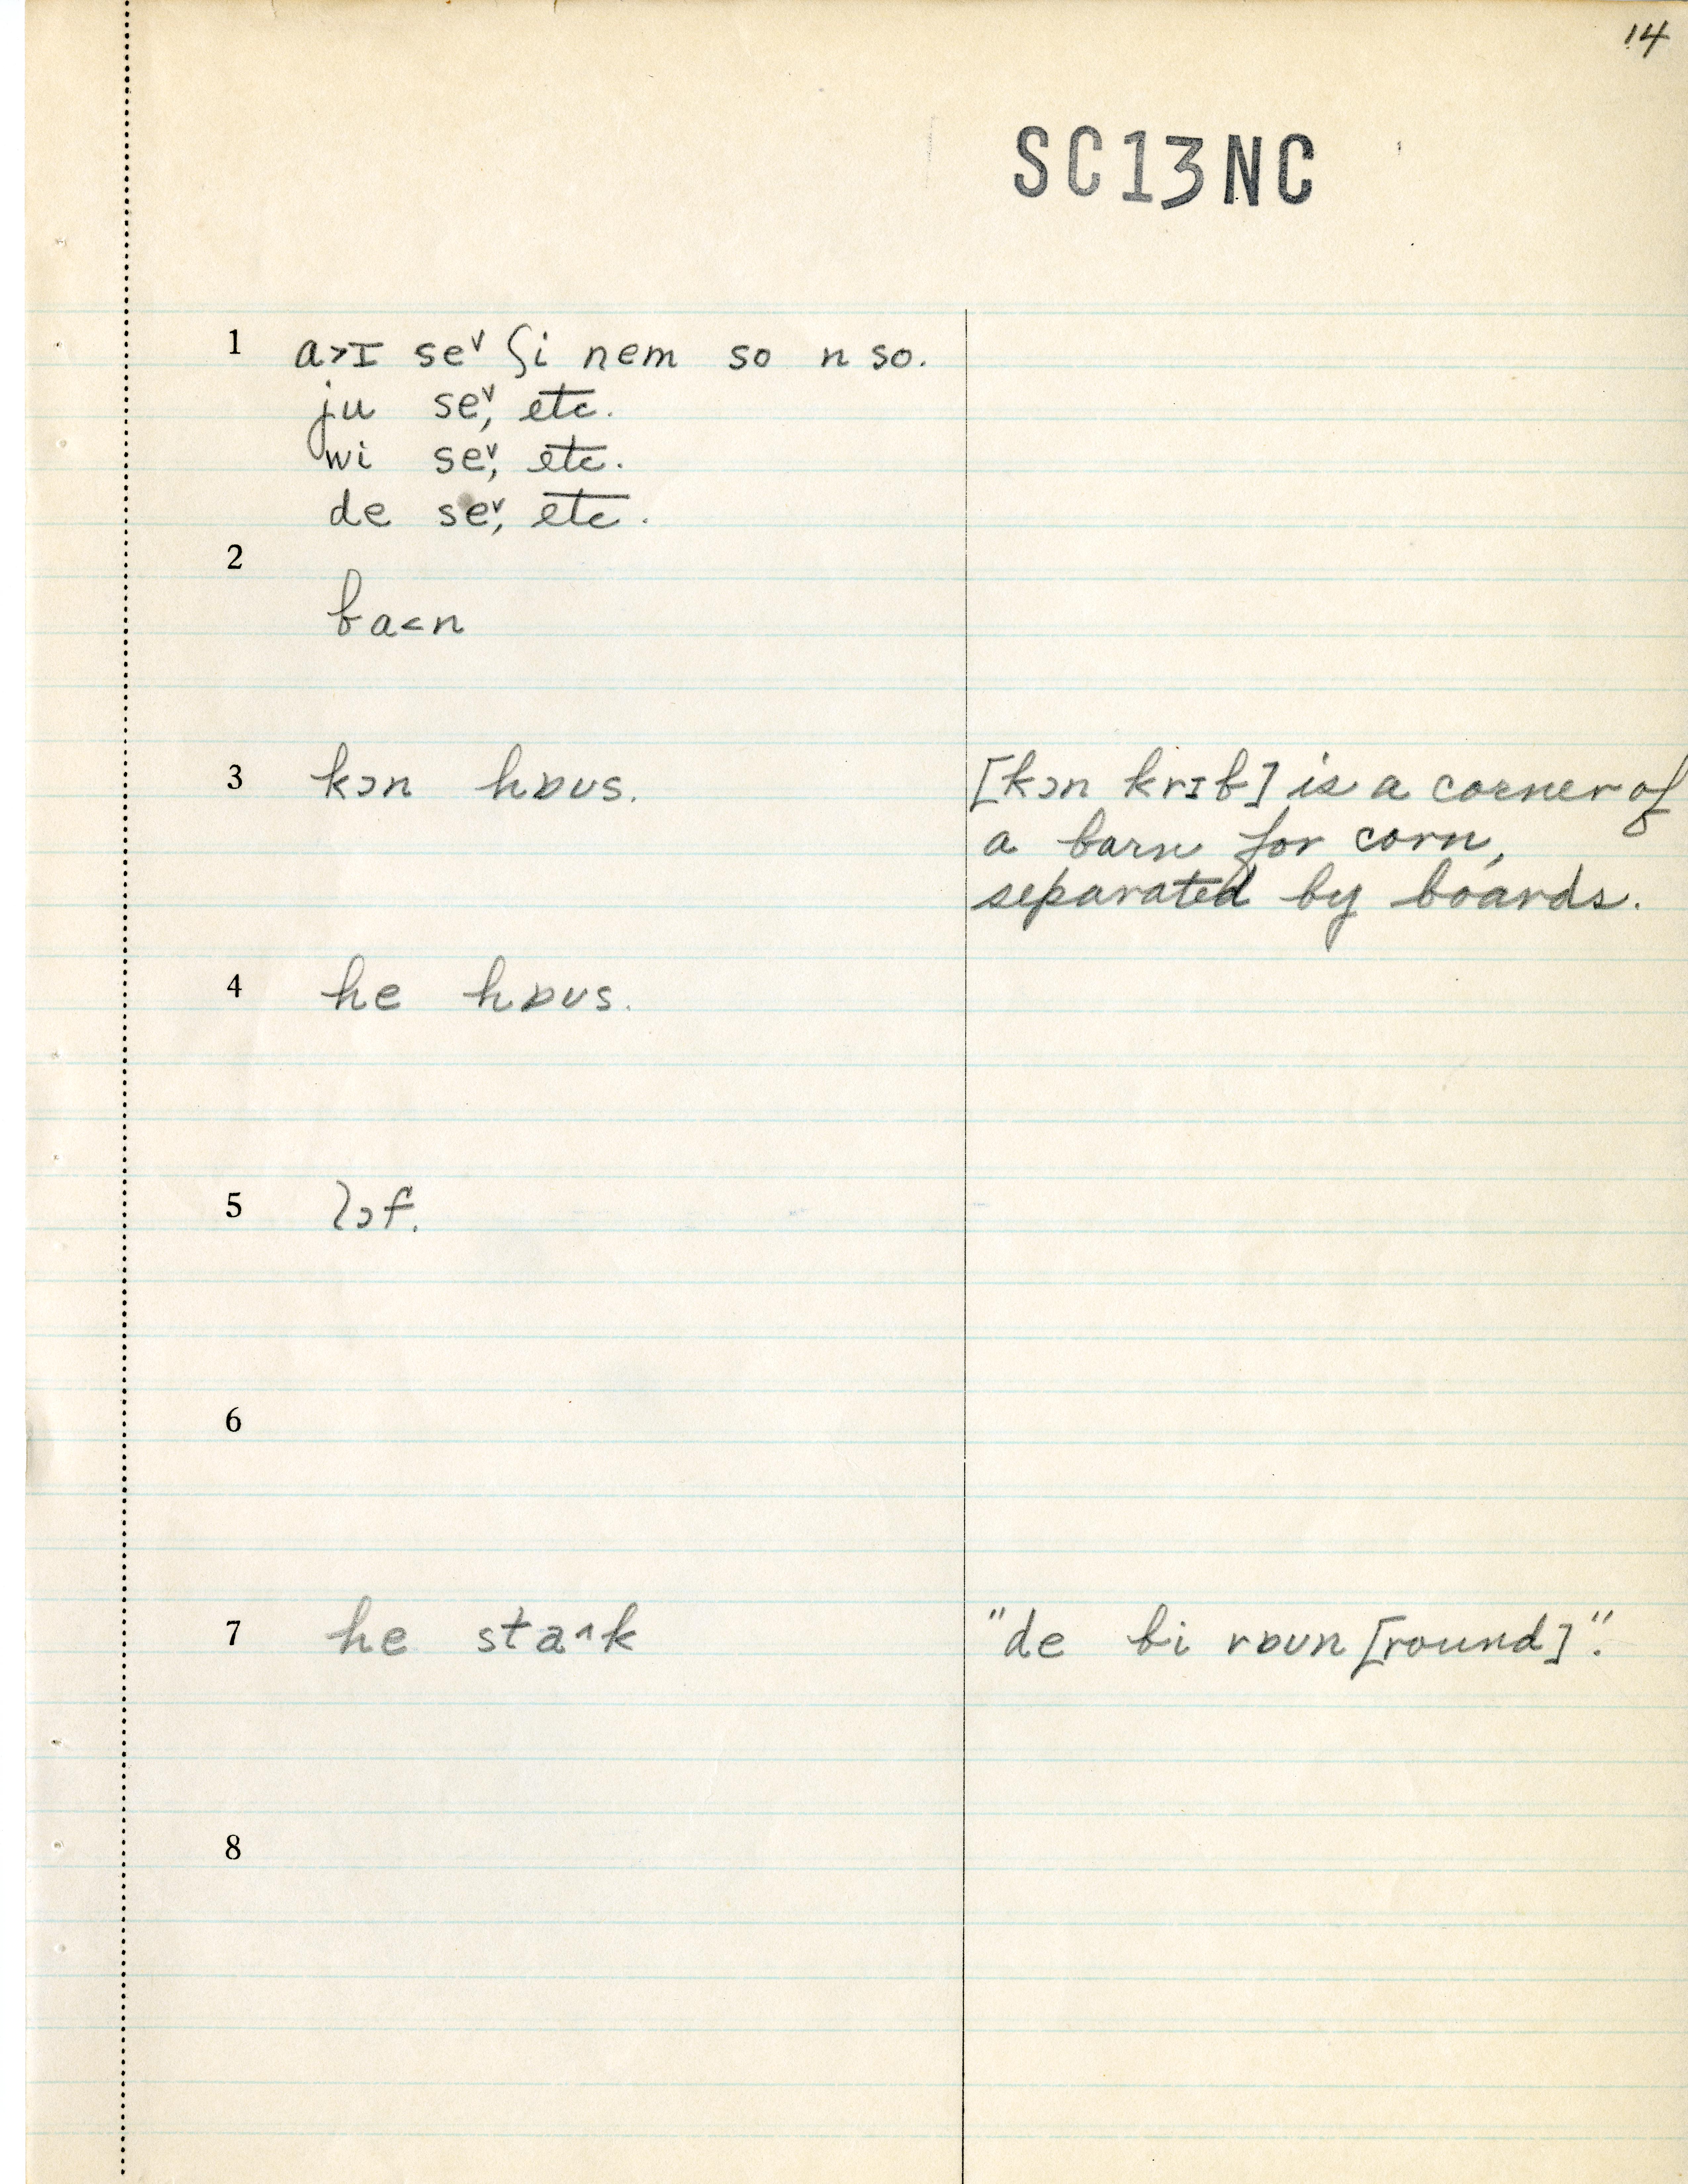 14
SC13NC
1 a>ɪ se˅ ʃi nem so n so.
ju se˅, etc.
wi se˅, etc.
de se˅, etc.
2
ba<n
3 kɔn hɒʊs. [kɔn krɪb] is a corner of
a barn for corn,
separated by boards.
4 he hɒʊs.
5 lɔf.
6
7 he sta^k "de bi rɒʊn [round]".
8